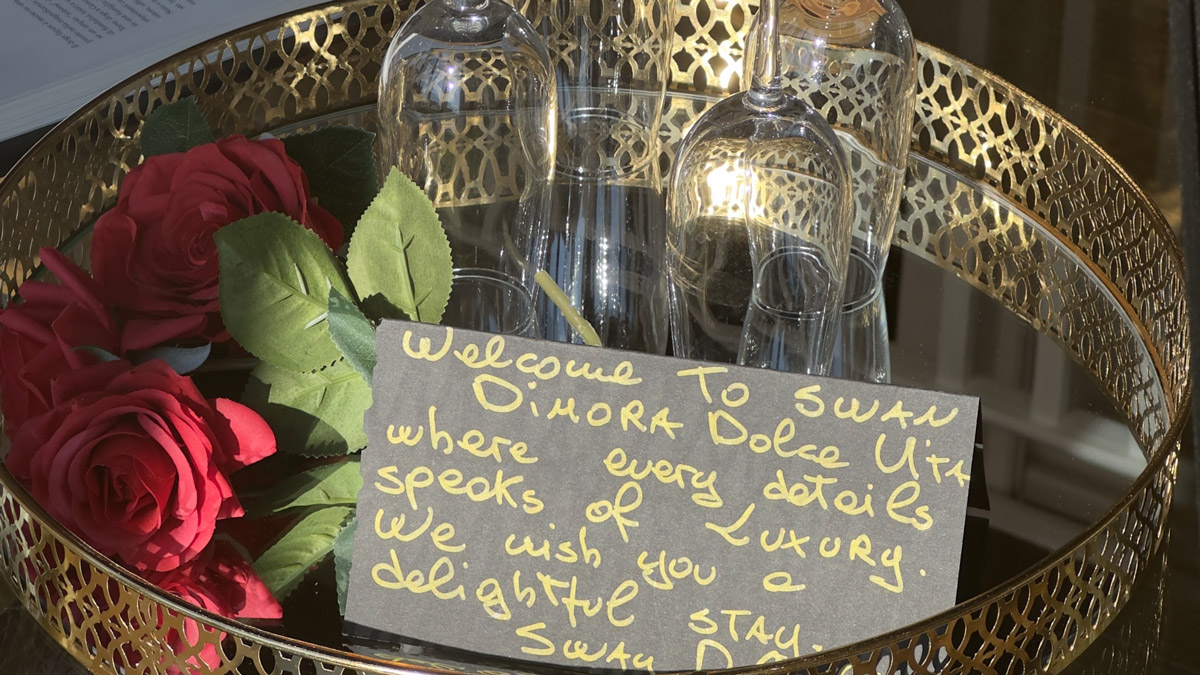 Welcome TO SWAN
DIMORA Dolce VITA
where every details
speaks of Luxury.
We wish you a
delightful STAY.
SWAN D